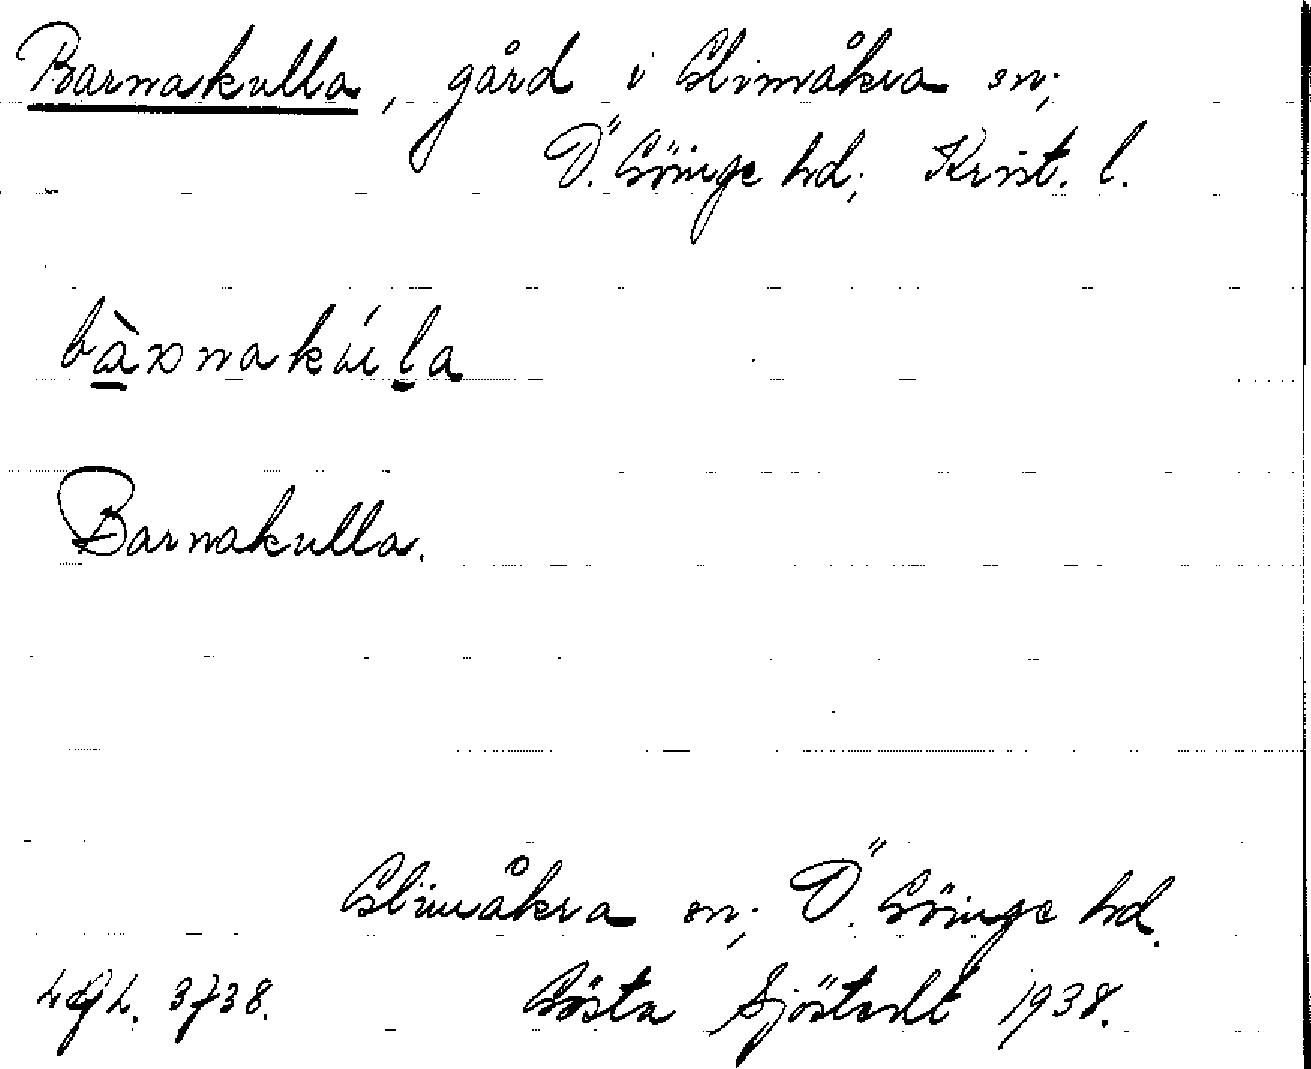 Barnakulla, gård i Glimåkra sn;
Ö. Göinge hd; Krist. l.
bànnakúla
Barnakulla.
Glimåkra sn; Ö. Göinge hd.
Gösta Sjöstedt 1938.